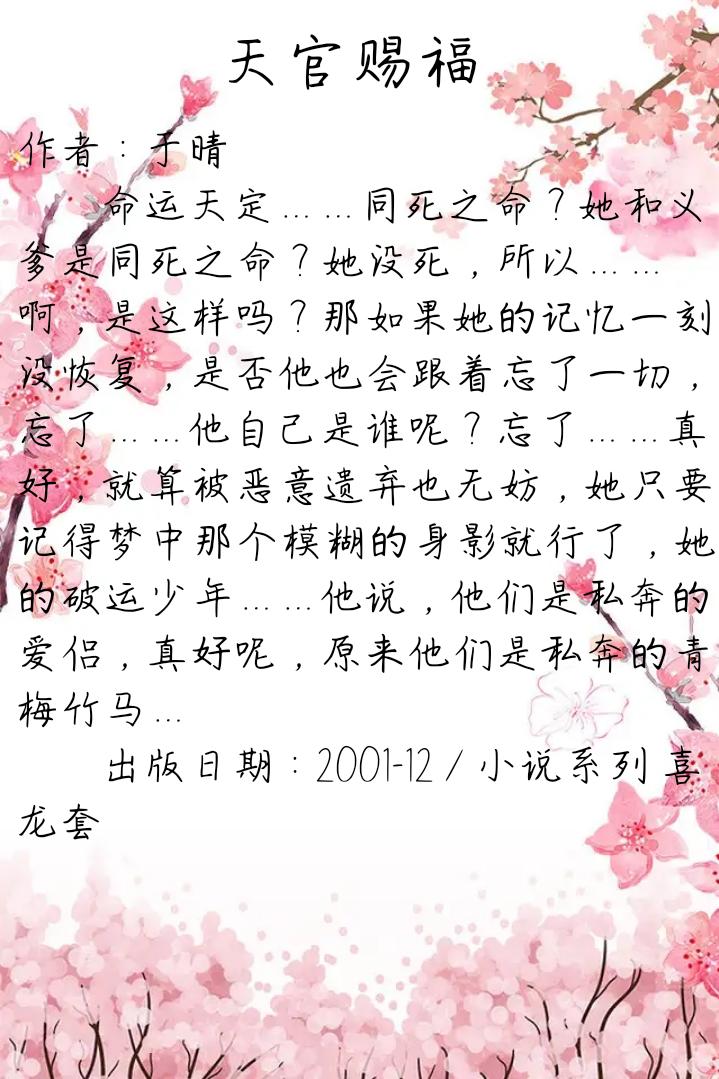 天官赐福
作者：于晴
命运天定……同死之命？她和义
爹是同死之命？她没死，所以……
啊，是这样吗？那如果她的记忆一刻
没恢复，是否他也会跟着忘了一切，
忘了……他自己是谁呢？忘了……真
好，就算被恶意遗弃也无妨，她只要
记得梦中那个模糊的身影就行了，她
的破运少年……他说，他们是私奔的
爱侣，真好呢，原来他们是私奔的青
梅竹马…
出版日期：2001-12 / 小说系列 喜
龙套